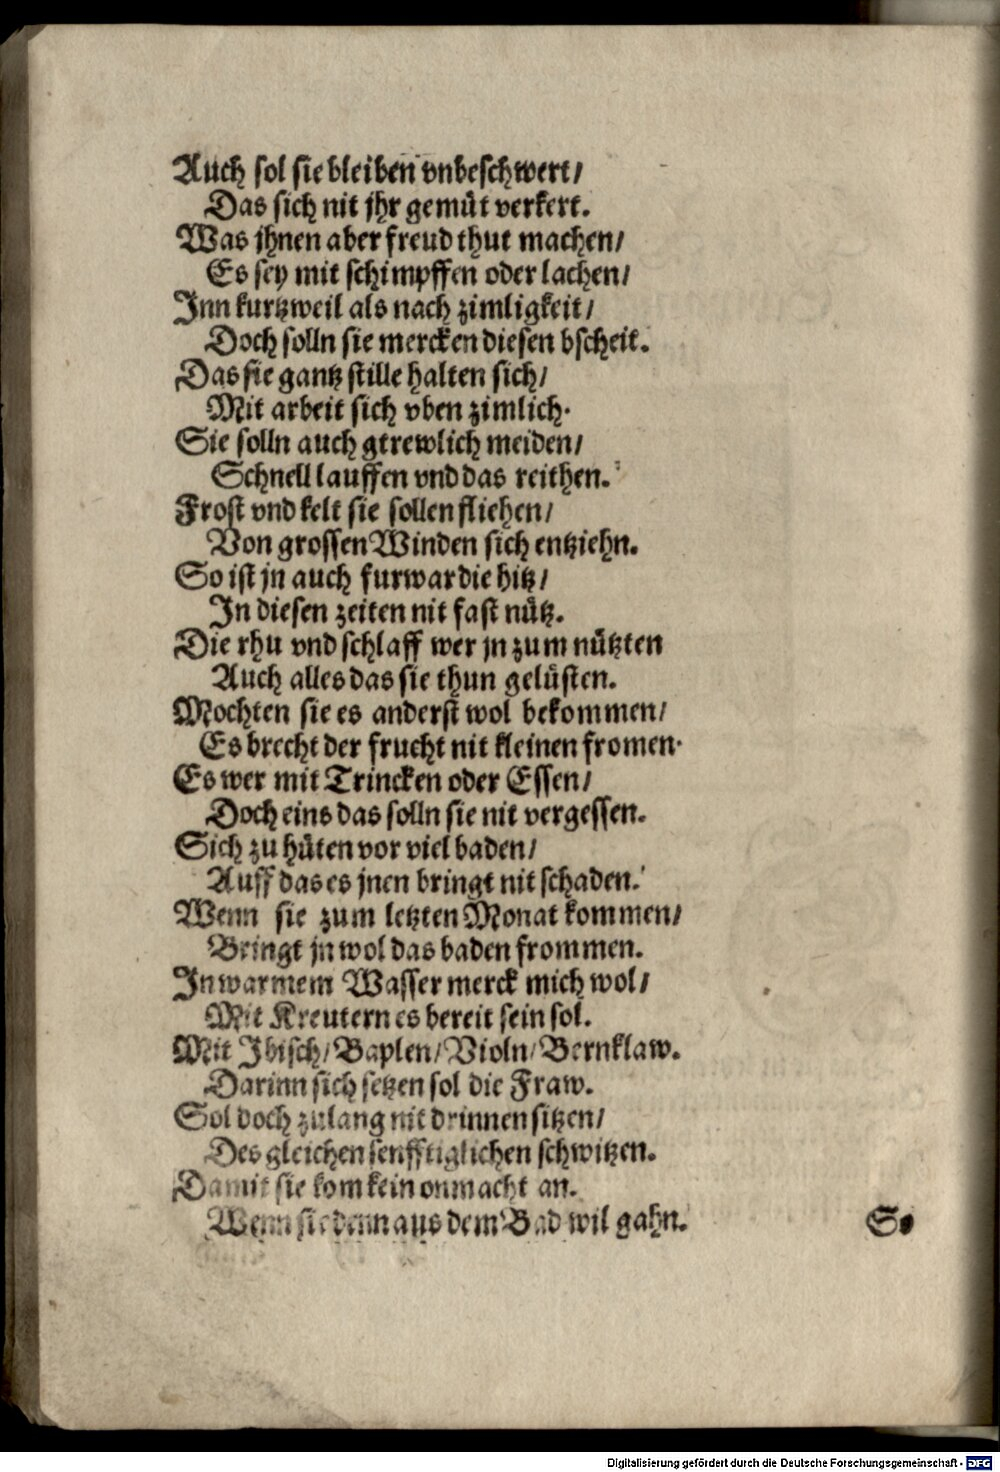 Auch sol sie bleiben vnbeschwert/
Das sich nit jhr gemüt verkert.
Was jhnen aber freud thut machen/
Es sey mit schimpffen oder lachen/
Inn kurtzweil als nach zimligkeit/
Doch solln sie mercken diesen bscheit.
Das sie gantz stille halten sich/
Mit arbeit sich vben zimlich.
Sie solln auch gtrewlich meiden/
Schnell lauffen vnd das reithen.
Frost vnd kelt sie sollen fliehen/
Von grossen Winden sich entziehn.
So ist jn auch furwar die hitz/
In diesen zeiten nit fast nütz.
Die rhu vnd schlaff wer jn zum nützten
Auch alles das sie thun gelüsten.
Mochten sie es anderst wol bekommen/
Es brecht der frucht nit kleinen fromen.
Es wer mit Trincken oder Essen/
Doch eins das solln sie nit vergessen.
Sich zu hüten vor viel baden/
Auff das es jnen bringt nit schaden.
Wenn sie zum letzten Monat kommen/
Bringt jn wol das baden frommen.
In warmem Wasser merck mich wol/
Mit Kreutern es bereit sein sol.
Mit Ibisch/Baplen/Violn/Bernklaw.
Darinn sich setzen sol die Fraw.
Sol doch zulang nit drinnen sitzen/
Des gleichen senfftiglichen schwitzen.
Damit sie kom kein onmacht an.
Wenn sie denn aus dem Bad wil gahn.
So
Digitalisierung gefördert durch die Deutsche Forschungsgemeinschaft - DFG